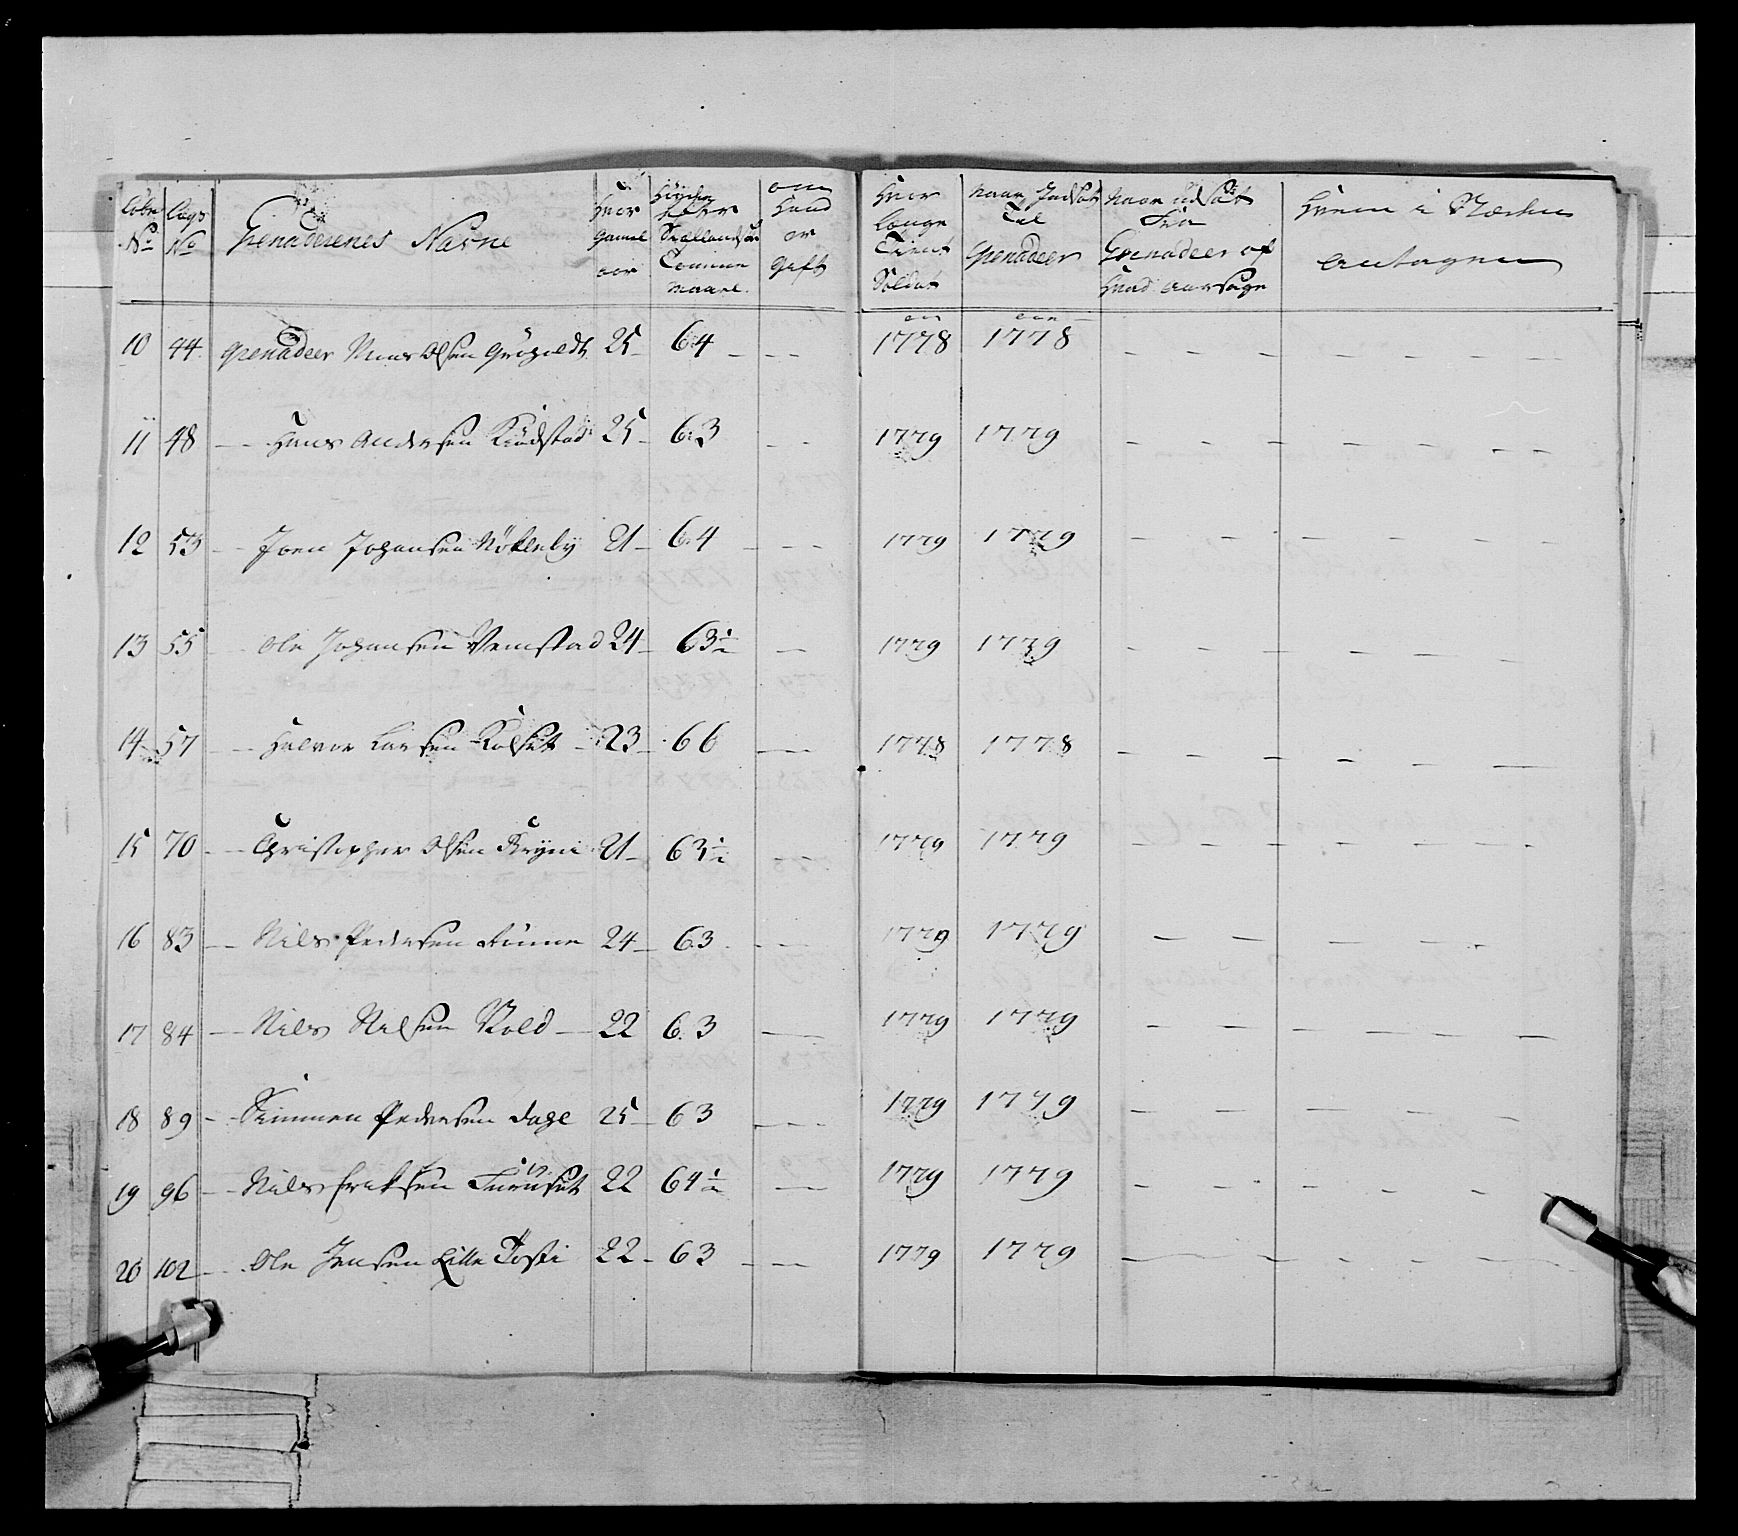 Løbe No
Lægs No
Grenaderenes Navne
Hvor gamel aar
Høyde efter Siællandske Tomme maal.
om Hand er gift
Hvor længe Tient Soldat
naar Indsat Til Grenadeer
Naar udsat Fra Grenadeer og Hvad aarsage
Hvem i Stæden antagen
10 44. Grenadeer Olsen 25 64 - - - 1778 1778 - - - - - - -
11 48 - - Hans Andersen 25 - 6.3 - - 1779 1779 - - - - - - -
12 53 - - Joen Johansen Nökleby 21 - 6.4 - - - 1779 1779 - - - - - -
13 55 - - Ole Johansen Vemstad 24 - 63½ - 1779 1779 - - - - - -
14 57 - - Halvor Larsen Kolset - 23 - 66 - 1778 1778 - - - - - -
15 70 - - Christopher Olsen 21 - 63½ - - 1779 1779 - - - - - -
16 83 - - Nils Pedersen 24 - 63 - - - 1779 1779 - - - - -
17 84 - - Nils Nilsen Vold - 22 6.3 - 1779 1779 - - - - - -
18 89 - - Simmen Pedersen 25 - 63 - - - 1779 1779 - - - - - -
19 96 - - Nils Eriksen Furuset 22 64½ - 1779 1779 - - - - -
20 102 - - Ole Jensen Lille Tosti 22 - 63 - - 1779 1779 - - - - - -